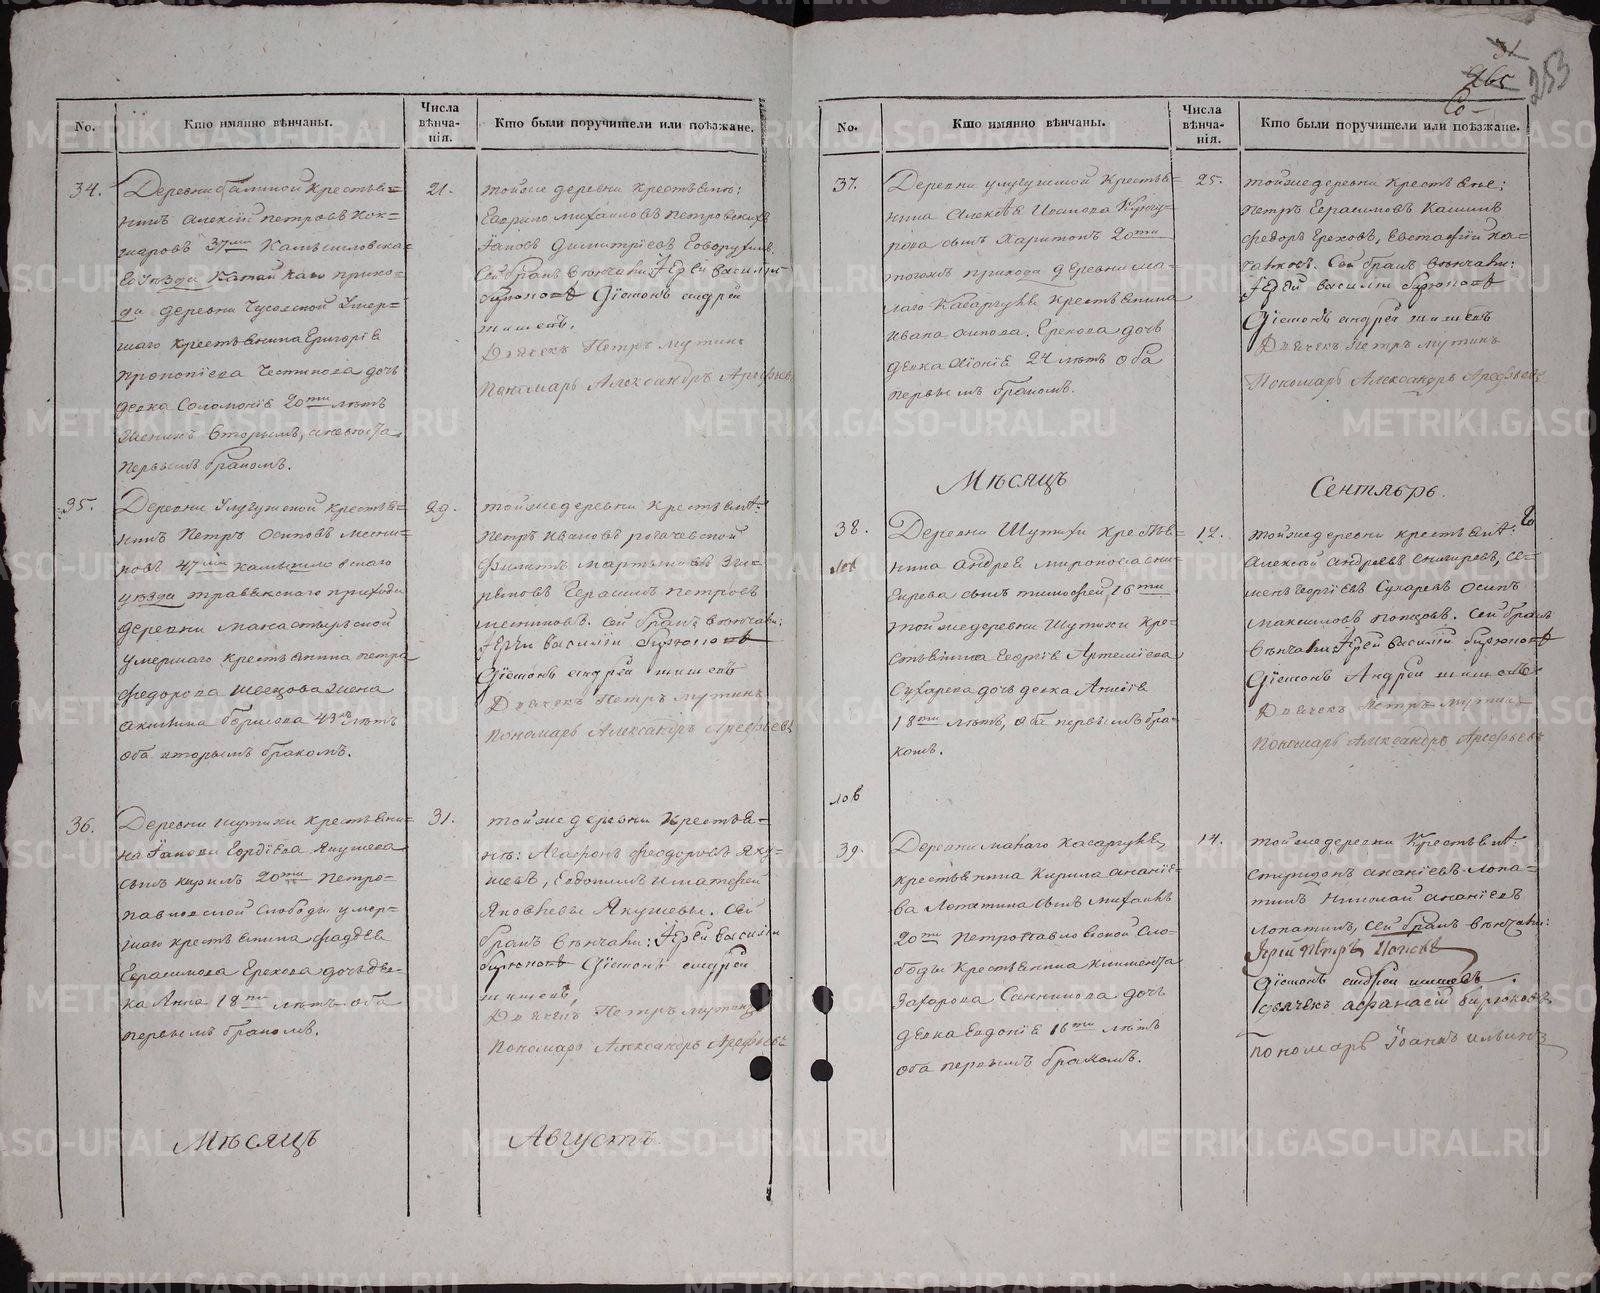 31
265
253
Со-
No.
Кто имянно вѣнчаны.
Числа
вѣнча-
нія.
Кто были поручители или поѣзжане.
34.
Деревни крестья-
нинъ Алексѣй Петровъ Кок-
шаровъ 37ми Камышловска-
го уѣзда Катайскаго прихо-
да деревни Чусовской умер-
шаго крестьянина Григорія
Прокопіева дочь
девка Соломонія 20ти лѣтъ
женихъ вторымъ, а невеста
первымъ бракомъ.
21.
тойже деревни крестьяне:
Гаврило Михаиловъ Петровскихъ
Іаковъ Димитріевъ
Сей бракъ вѣнчали: Іерей Василій
Бирюковъ Діаконъ Андрей
Шишевъ.
Дьячекъ Петръ Мутинъ
Пономарь Александръ Арефьевъ
35.
Деревни крестья-
нинъ Петръ Осиповъ Месни-
ковъ 47ми Камышловскаго
уѣзда Травянскаго прихода
деревни Монастырской
умершаго крестьянина Петра
Федорова Швецова жена
Акилина 43 лѣтъ
оба вторымъ бракомъ.
29.
тойже деревни крестьяне:
Петръ Ивановъ
Филипъ Мартыновъ Зы-
ряновъ Герасимъ Петровъ
Месниковъ. Сей бракъ вѣнчали:
Іерей Василій Бирюковъ
Діаконъ Андрей Шишевъ
Дьячекъ Петръ Мутинъ
Пономарь Александръ Арефьевъ
36.
Деревни Шутихи крестьяни-
на Іакова Гордѣева Якушева
сынъ 20ти Петро-
павловской слободы умер-
шаго крестьянина Фадѣя
Герасимова Ерехова дочь дев-
ка Анна 18ти лѣтъ оба
первымъ бракомъ.
31.
тойже деревни крестья-
не: Агафонъ Феодоровъ Яку-
шевъ, Евдокимъ и Матфей
Яковлевы Якушевы. Сей
бракъ вѣнчали: Іерей Василій
Бирюковъ Діаконъ Андрей
Шишевъ,
Дьячекъ Петръ Мутинъ
Пономарь Александръ Арефьевъ
Мѣсяцъ
Августъ.
No.
Кто имянно вѣнчаны.
Числа
вѣнча-
нія.
Кто были поручители или поѣзжане.
37.
Деревни крестья-
нина Алексѣя Иванова
сынъ Харитонъ 20ти
тогожъ прихода деревни Ма-
лаго Касаргуля крестьянина
Ивана Осипова Ерехова дочь
девка 24 лѣтъ оба
первымъ бракомъ.
25.
тойже деревни крестьяне:
Петръ Герасимовъ Кашинъ
Федоръ Ереховъ, Евстафій
Сей бракъ вѣнчали:
Іерей Василій Бирюковъ
Діаконъ Андрей Шишевъ
Дьячекъ Петръ Мутинъ
Пономарь Александръ Арефьевъ
Мѣсяцъ
Сентябрь.
38.
Деревни Шутихи крестья-
нина Андрея Миронова Сни-
гирева сынъ Тимофей 16ти
тойже деревни Шутихи кре-
стьянина Георгія Артеміева
Сухарева дочь девка
18ти лѣтъ, оба первымъ бра-
комъ.
12.
тойже деревни крестьяне:
Алексѣй Андреевъ Снигиревъ, Се-
менъ Георгіевъ Сухаревъ Осипъ
Максимовъ Попцовъ. Сей бракъ
вѣнчали Іерей Василій Бирюковъ
Діаконъ Андрей Шишевъ
Дьячекъ Петръ Мутинъ
Пономарь Александръ Арефьевъ
39.
Деревни Малаго Касаргуля
крестьянина Кирила Ананіе-
ва Лопатина сынъ Михаилъ
20ти Петропавловской Сло-
боды крестьянина Климента
Захарова Санникова дочь
девка Евдокія 16ти лѣтъ
оба первымъ бракомъ.
14.
тойже деревни крестьяне:
Спиридонъ Ананіевъ Лопа-
тинъ Николай Ананіевъ
Лопатинъ, сей бракъ вѣнчали:
Іерей Петръ Поповъ
Діаконъ Андрей Шишевъ.
Дьячекъ Афанасій Бирюковъ
Пономарь Іоаннъ Ильинъ